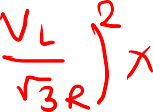 \frac{V_L}{\sqrt{3}R})^2 x